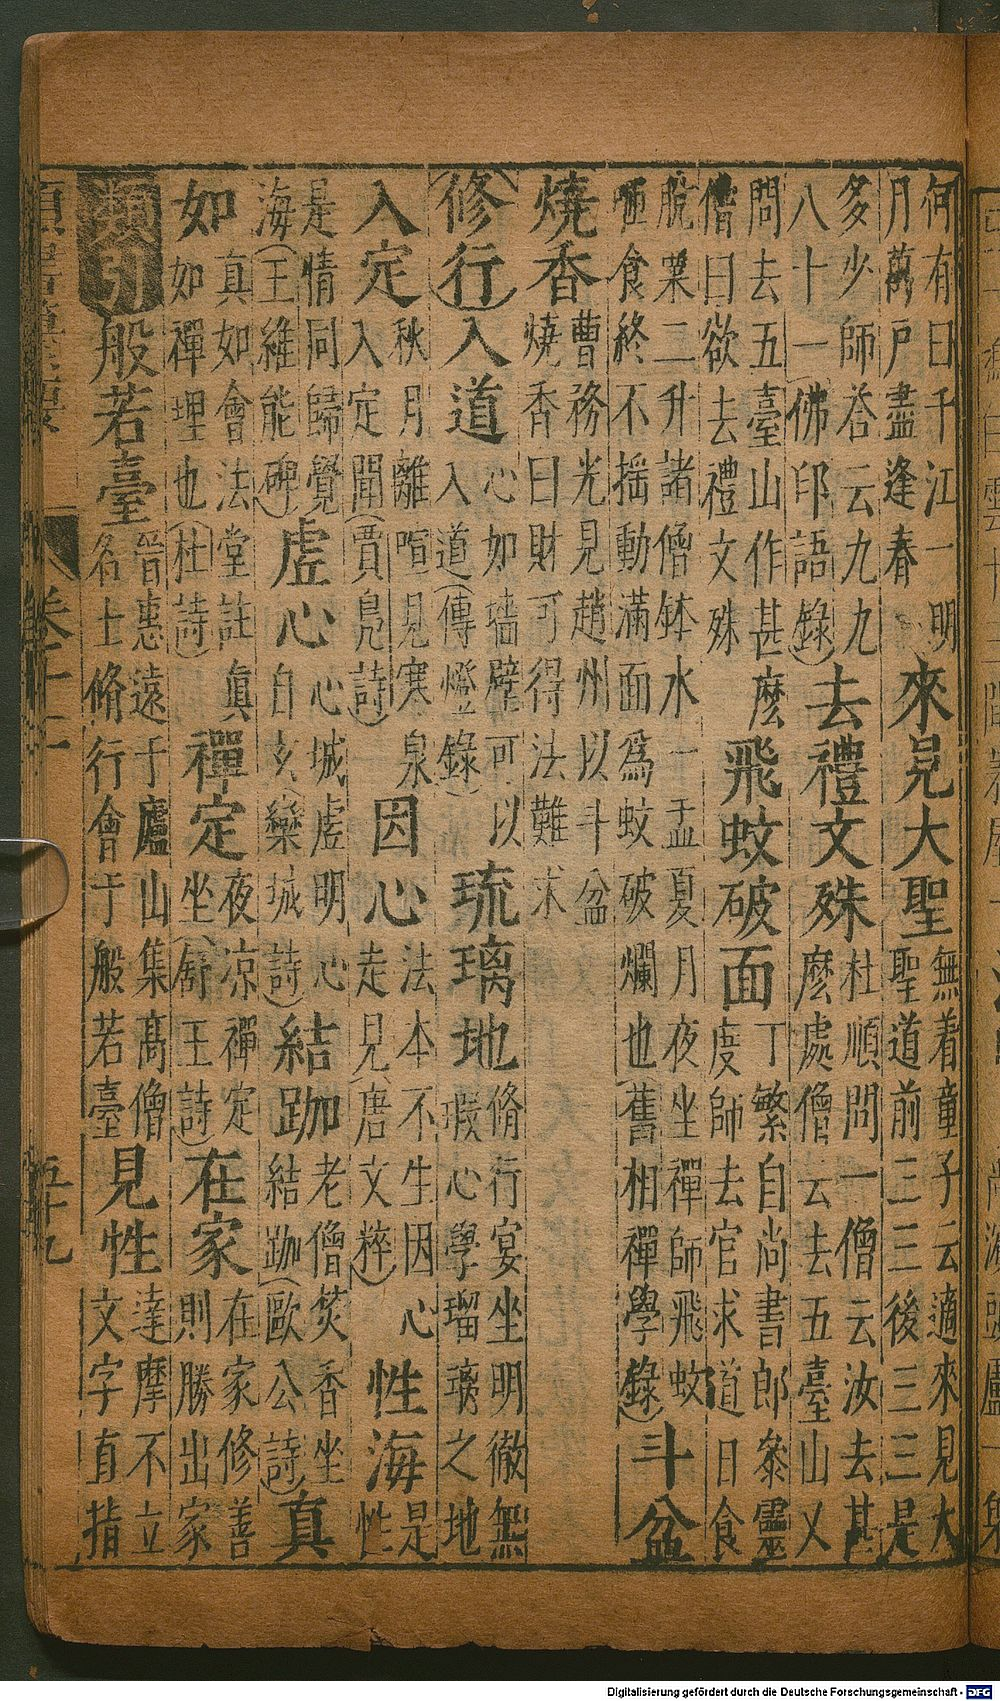 何有曰千江一明
月萬戶盡逢春
來見大聖
無着童子云適來見大
聖道前三三後三三是
多少師荅云九九
八十一(佛印語錄)
去禮文殊
杜順問一僧云汝去甚
麽處僧云去五臺山又
問去五臺山作甚麽
僧曰欲去禮文殊
飛蚊破面
丁繁自尚書郎叅靈
度師去官求道日食
脫粟二升諸僧鉢水一盂夏月夜坐禪師飛蚊
咂食終不摇動滿面為蚊破爛也(舊相禪學錄)
斗盆
燒香
曹務光見趙州以斗盆
燒香曰財可得法難求
(修行)入道
心如墻壁可以
入道(傳燈錄)
琉璃地
脩行宴坐明徹無
瑕心學瑠璃之地
入定
秋月離喧見寒泉
入定聞(賈島詩)
因心
法本不生因心
走見(唐文粹)
性海
是
性
是情同歸覺
海(王維能碑)
虛心
心城虛明心
自玄(欒城詩)
結跏
老僧焚香坐
結跏(歐公詩)
真
如
真如會法堂註真
如禪理也(杜詩)
禪定
夜凉禪定
坐(舒王詩)
在家
在家修善
則勝出家
類切
般若臺
晉惠遠于廬山集髙僧
名士脩行會于般若臺
見性
達摩不立
文字直指
卷十二
五十九
Digitalisierung gefördert durch die Deutsche Forschungsgemeinschaft - DFG